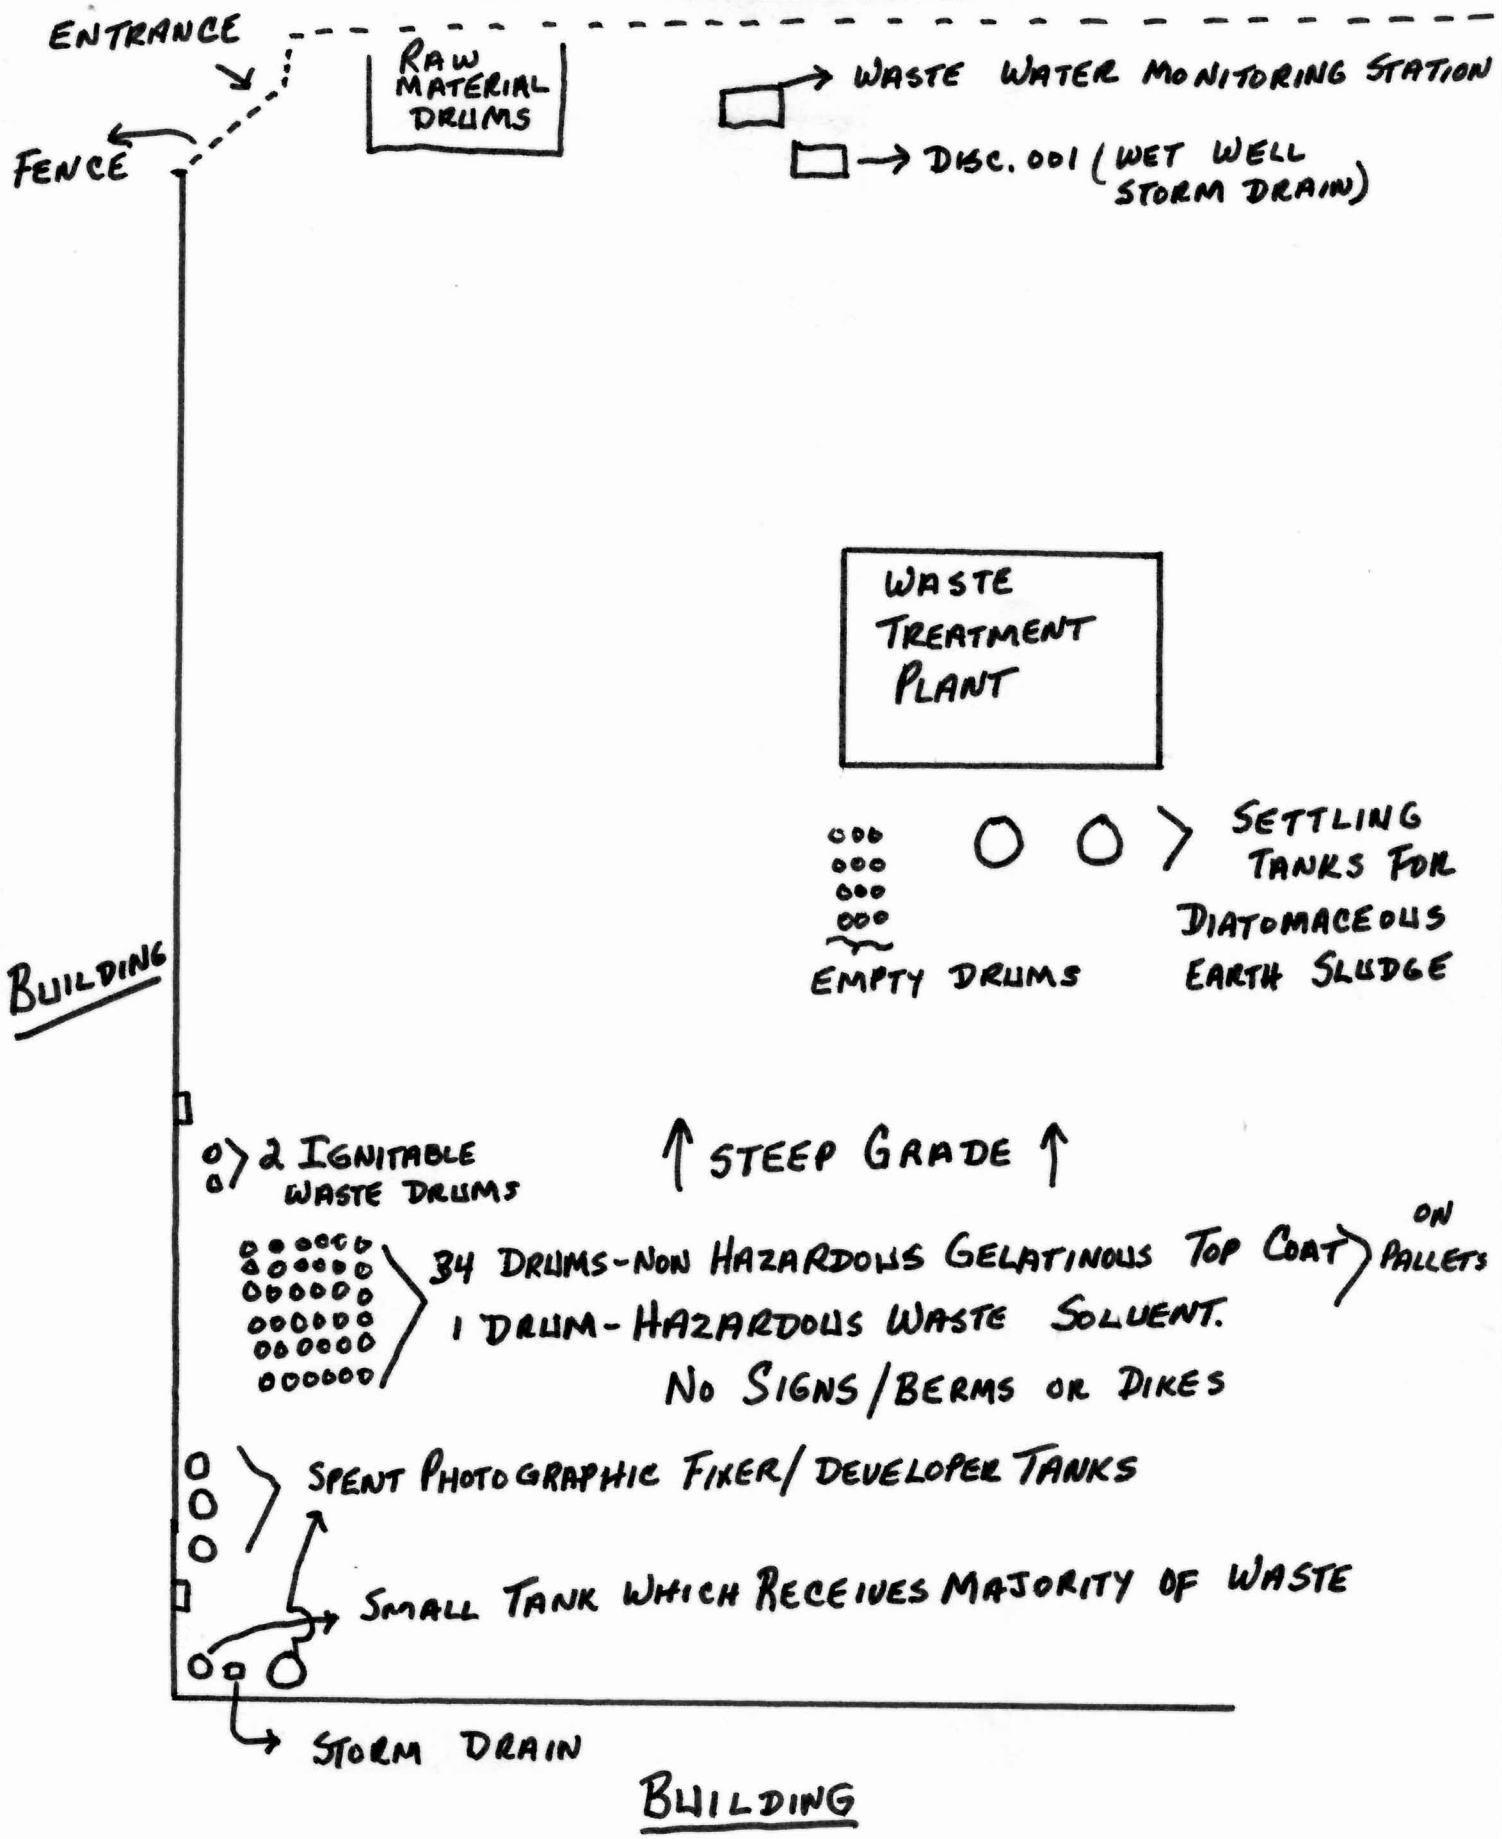 ENTRANCE
FENCE
RAW
MATERIAL
DRUMS
WASTE WATER MONITORING STATION
DISC. 001 (WET WELL
STORM DRAIN)
WASTE
TREATMENT
PLANT
SETTLING
TANKS FOR
DIATOMACEOUS
EARTH SLUDGE
EMPTY DRUMS
BUILDING
2 IGNITABLE
WASTE DRUMS
↑ STEEP GRADE ↑
34 DRUMS-NON HAZARDOUS GELATINOUS TOP COAT
1 DRUM-HAZARDOUS WASTE SOLVENT.
ON
PALLETS
NO SIGNS/BERMS OR DIKES
SPENT PHOTOGRAPHIC FIXER/DEVELOPER TANKS
SMALL TANK WHICH RECEIVES MAJORITY OF WASTE
STORM DRAIN
BUILDING